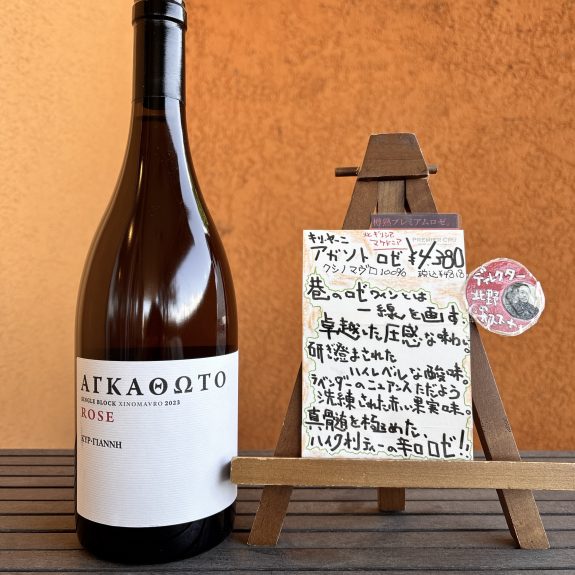 ΑΓΚΑΘΩΤΟ
SINGLE BLOCK XINOMAVRO 2023
ROSE
ΚΥΡ-ΓΙΑΝΝΗ
樽熟プレミアムロゼ。
キリ・ヤーニ
北ギリシア
マケドニア
PREMIER CRU
アガソト ロゼ ¥4380
クシノマヴロ100% 税込¥4818
巷のロゼワインとは
一線を画す、
卓越した圧巻な味わい。
研ぎ澄まされた
ハイレベルな酸味。
ラベンダーのニュアンスただよう
洗練された赤い果実味。
真髄を極めた、
ハイクオリティーの辛口ロゼ!!
ディレクター
北野
オススメ!